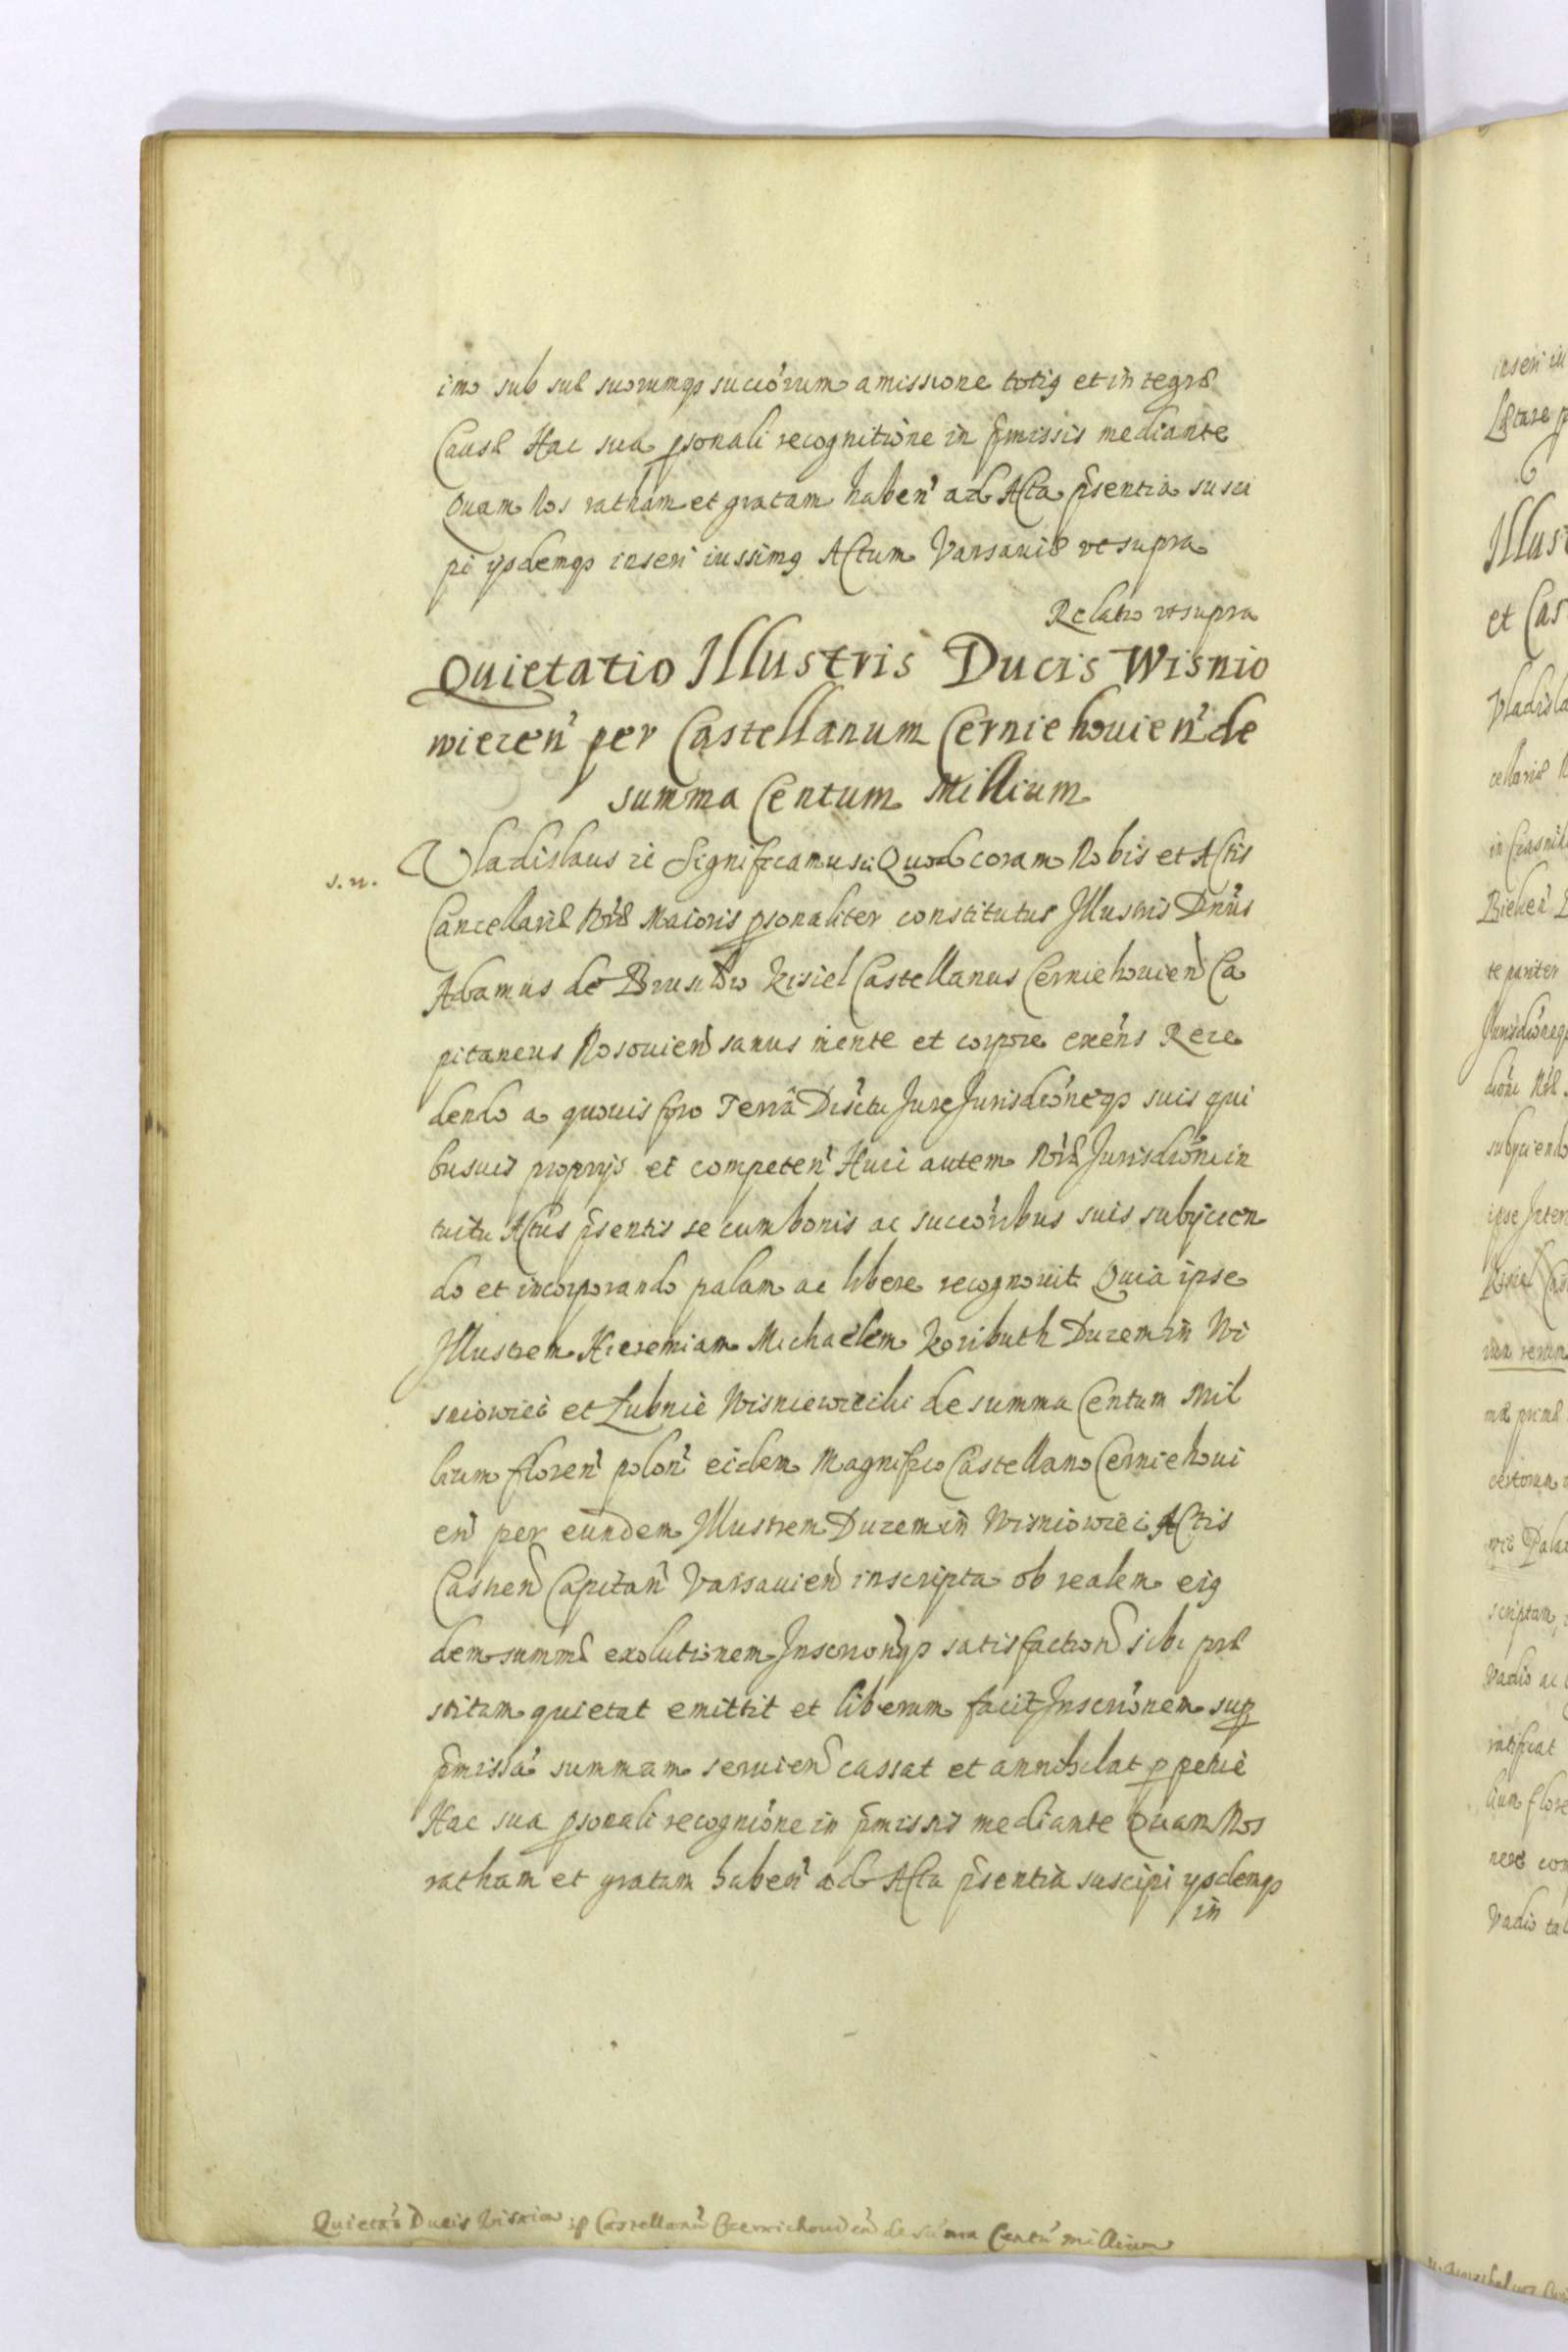 imo sub suæ suorumqꝫ succorum amissione totiꝰ et integræ
Causæ Hac sua psonali recognitione in pmissis mediante
Quam Nos ratham et gratam haben ad Acta psentia susci
pi ysdemqꝫ inseri iussimꝰ Actum Varsauiæ vt supra
Relatio vt supra
Quietatio Illustris Ducis Wisnio
wiecen per Castellanum Cerniehouien de
summa Centum Millium
Vladislaus zc Significamus zc Quod coram Nobis et Actis
s. n.
Cancellariæ Nræ Maioris psonaliter constitutus Illustris Dnus
Adamus de Brusilow Kisiel Castellanus Cerniehouien Ca
pitaneus Nosouien sanus mente et corpore exens Rece
dendo a quouis foro Terra Disctu Jure Jurisdioneqꝫ suis qui
busuis proprijs et competen Huic autem Nræ Jurisdioni in
tuitu Actus psentis se cum bonis ac succoribus suis subyicien
do et incorporando palam ac libere recognouit Quia ipse
Illustrem Hieremiam Michaelem Koributh Ducem in Wi
sniowiec et Lubnie Wisniewiecki de summa Centum Mil
lium floren polon eidem Magnifico Castellano Cerniehoui
en per eundem Illustrem Ducem in Wisniowiec Actis
Castren Capitan Varsauien inscripta ob realem eiꝰ
dem summæ exolutionem Inscrionqꝫ satisfaction sibi præ
stitam quietat emittit et liberum facit Inscrionem sup
pmissa summam seruien cassat et annihilat ppetue
Hac sua psonali recognione in pmissis mediante Quam Nos
ratham et gratam haben ad Acta psentia suscipi ysdemqꝫ
in
Quietao Ducis Wisniow p Castellanu Czernichouien de suma Centu millium